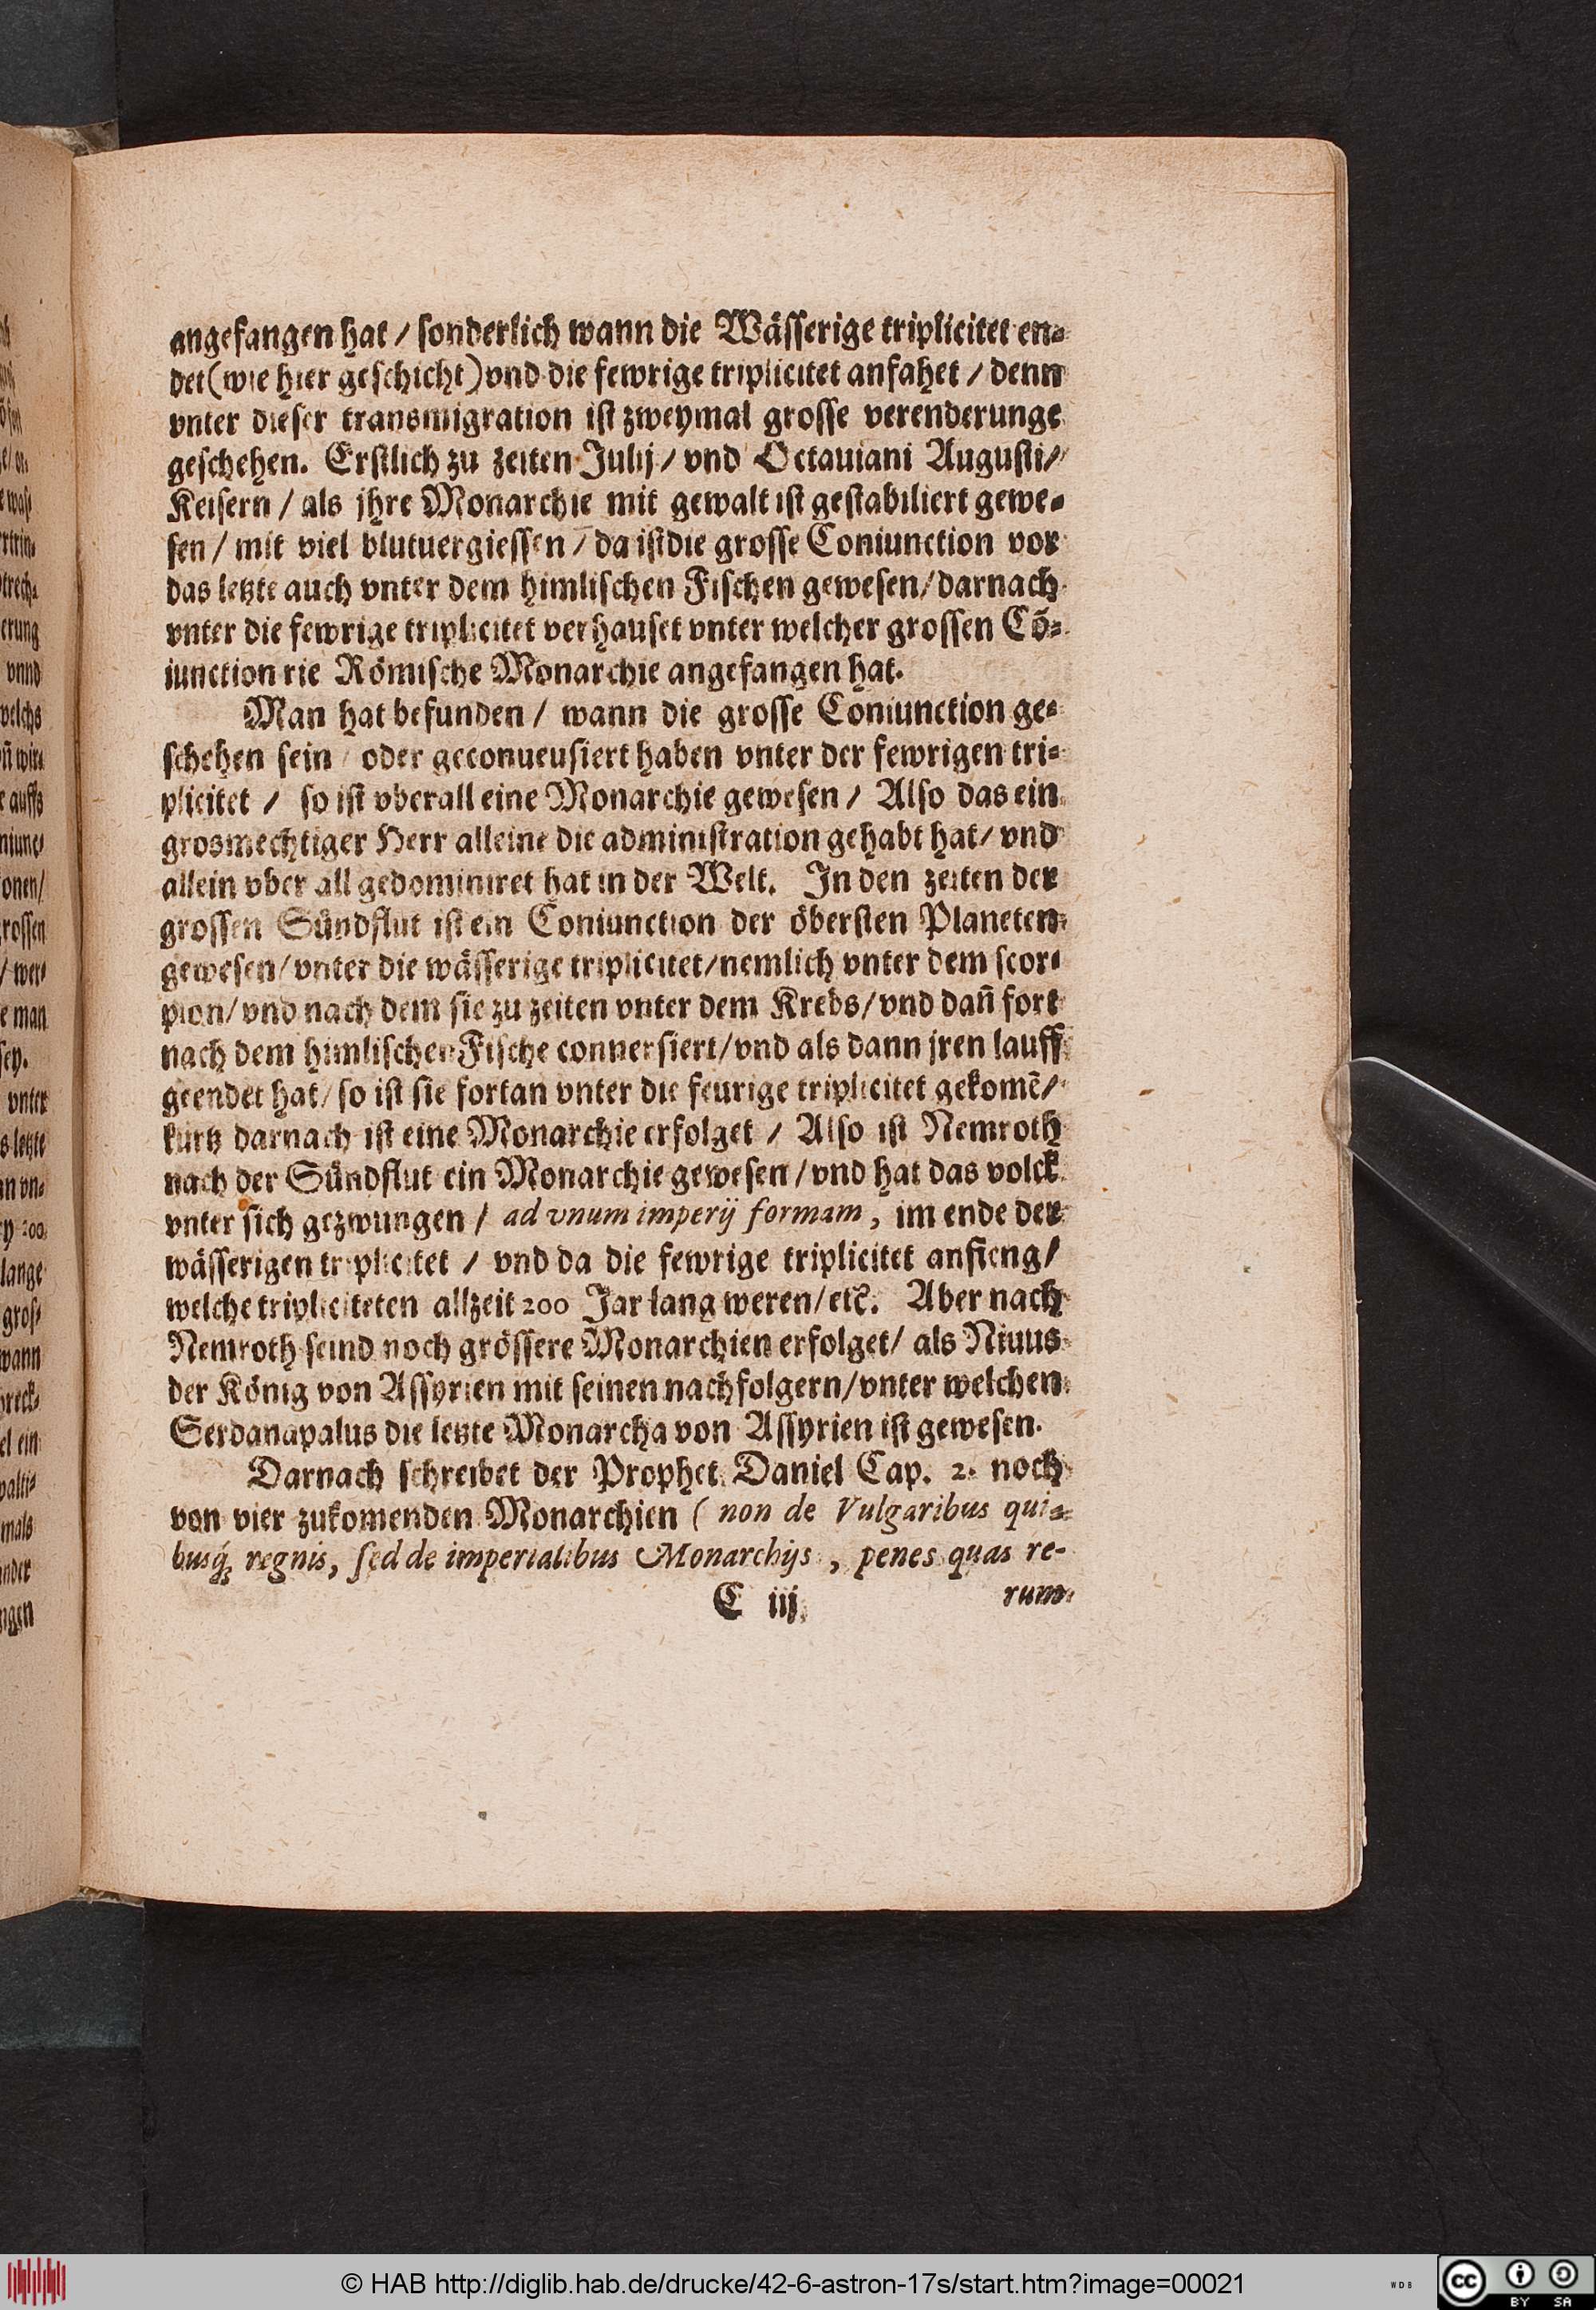 angefangen hat / sonderlich wann die Wässerige triplicitet en⸗
det (wie hier geschicht) vnd die fewrige triplicitet anfahet / denn
vnter dieser transmigration ist zweymal grosse verenderunge
geschehen. Erstlich zu zeiten Julij / vnd Octauiani Augusti /
Keisern / als jhre Monarchie mit gewalt ist gestabiliert gewe⸗
sen / mit viel blutuergiessen / da ist die grosse Coniunction vor
das letzte auch vnter dem himlischen Fischen gewesen / darnach
vnter die fewrige triplicitet verhauset vnter welcher grossen Cō⸗
iunction rie Römische Monarchie angefangen hat.
Man hat befunden / wann die grosse Coniunction ge⸗
schehen sein / oder geconueusiert haben vnter der fewrigen tri⸗
plicitet / so ist vberall eine Monarchie gewesen / Also das ein
grosmechtiger Herr alleine die administration gehabt hat / vnd
allein vber all gedominiret hat in der Welt. In den zeiten der
grossen Sündflut ist ein Coniunction der öbersten Planeten
gewesen / vnter die wässerige triplicitet / nemlich vnter dem scor⸗
pion / vnd nach dem sie zu zeiten vnter dem Krebs / vnd dañ fort
nach dem himlischen Fische conuersiert / vnd als dann jren lauff
geendet hat / so ist sie fortan vnter die feurige triplicitet gekomē /
kurtz darnach ist eine Monarchie erfolget / Also ist Nemroth
nach der Sündflut ein Monarchie gewesen / vnd hat das volck
vnter sich gezwungen / ad vnum imperij formam, im ende der
wässerigen triplicitet / vnd da die fewrige triplicitet anfieng /
welche tripliciteten allzeit 200 Jar lang weren / etc̃. Aber nach
Nemroth seind noch grössere Monarchien erfolget / als Niuus
der König von Assyrien mit seinen nachfolgern / vnter welchen
Serdanapalus die letzte Monarcha von Assyrien ist gewesen.
Darnach schreibet der Prophet Daniel Cap. 2. noch
von vier zukomenden Monarchien ( non de Vulgaribus qui⸗
busq́; regnis, sed de imperialibus Monarchijs, penes quas re-
C iij
rum
© HAB http://diglib.hab.de/drucke/42-6-astron-17s/start.htm?image=00021
WDB
cc BY SA